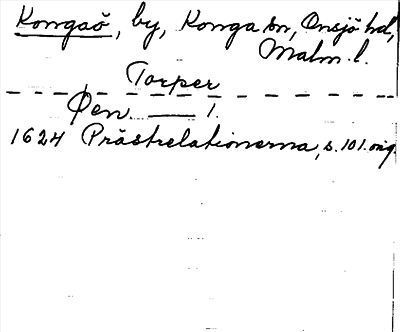 Kongaö, by, Konga sn, Onsjö hd,
Malm. l.
Torper
Pen. 1.
1624 Prästrelationerna, s. 101. orig.